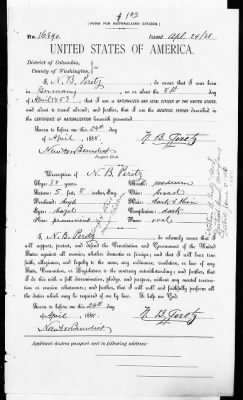 $1.00
[FORM FOR NATURALIZED CITIZEN.]
No. Issued Apl. 24/88
UNITED STATES OF AMERICA.
District of Columbia,
County of Washington,
I, N. B. Perotz, do swear that I was born
in Germany on or about the 8th day
of April; that I am a NATURALIZED AND LOYAL CITIZEN OF THE UNITED STATES,
and about to travel abroad; and further, that I am the IDENTICAL PERSON described in the
CERTIFICATE OF NATURALIZATION herewith presented.
Sworn to before me this 24th
day of April, 1888.
Newton Benedict
N. B. Perotz
Notary Public
Description of N. B. Perotz
Age: Mouth: medium
Stature: 5 feet 8 inches, Eng. Chin: broad
Forehead: high Hair: dark & thin
Eyes: hazel Complexion: dark
Nose: prominent Face: oval
I, N. B. Perotz, do solemnly swear that I
will support, protect, and defend the Constitution and Government of the United
States against all enemies, whether domestic or foreign; and that I will bear true
faith, allegiance, and loyalty to the same, any ordinance, resolution, or law of any
State, Convention, or Legislature to the contrary notwithstanding; and further, that
I do this with a full determination, pledge, and purpose, without any mental reservation
or evasion whatsoever; and further, that I will well and faithfully perform all
the duties which may be required of me by law. So help me God.
Sworn to before me this 24th
day of April, 1888.
Newton Benedict
N. B. Perotz
Applicant desires passport sent to following address: